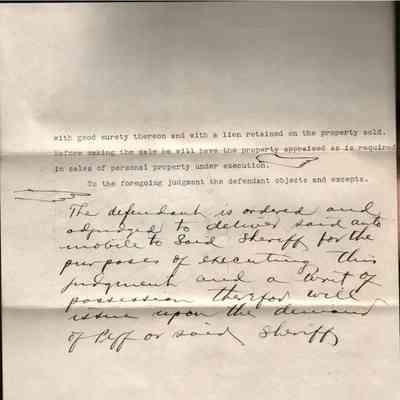 with good surety thereon and with a lien retained on the property sold.
Before making the sale he will have the property appraised as is required
in sales of personal property under execution.
To the foregoing judgment the defendant objects and excepts.
The defendant is ordered and
adjudged to deliver said auto
mobile to Said Sheriff for the
purposes of executing this
judgment and a Writ of
possession therefor will
issue upon the demand
of Pfff or said Sheriff